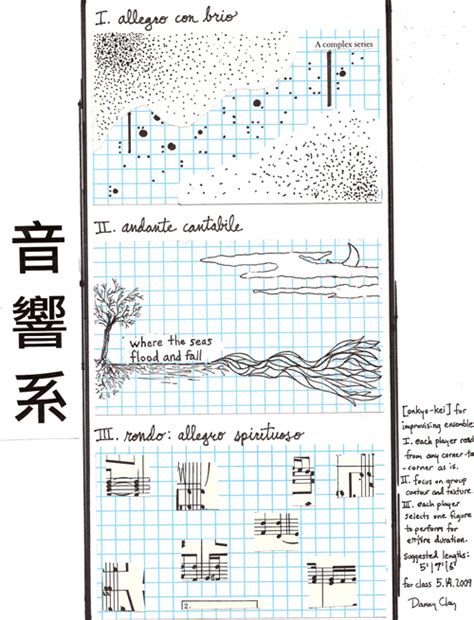 I. allegro con brio
A complex series
II. andante cantabile
where the seas
flood and fall
III. rondo: allegro spirituoso
2.
音
響
系
[onkyo-kei] for
improvising ensemble:
I. each player reads
from any corner-to
-corner as is.
II. focus on group
contour and texture
III. each player
selects one figure
to perform for
entire duration.
suggested lengths:
5'|7'|6'
for class 5.14.2009
Danny Clay